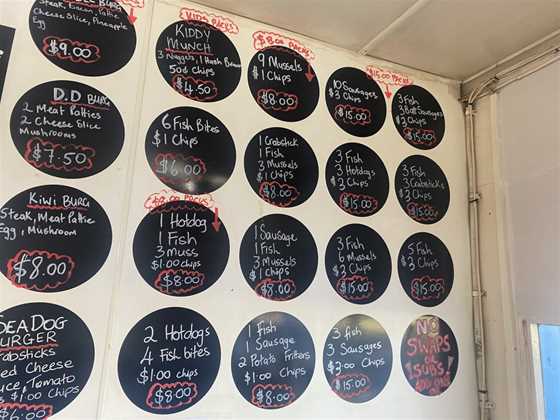 BURG
Steak, Bacon, Pattie,
Cheese Slice, Pineapple
Egg
$9.00
D.D BURG
2 Meat Patties
2 Cheese Slice
Mushrooms
$7.50
Kiwi BURG
Steak, Meat Pattie
Egg, Mushroom
$8.00
SEA DOG
BURGER
Cheese
Tomato
$1.00 Chips
KIDS PACKS
KIDDY
MUNCH
3 Nuggets, 1 Hash Brown
50¢ Chips
$4.50
6 Fish Bites
$1 Chips
$6.00
$8.00 PACKS
1 Hotdog
1 Fish
3 Muss
$1.00 Chips
$8.00
2 Hotdogs
4 Fish bites
$1.00 chips
$8.00
$8.00 PACKS
9 Mussels
$1 Chips
$8.00
1 Crabstick
1 Fish
3 Mussels
$1 Chips
$8.00
1 Sausage
1 Fish
3 Mussels
$1 chips
$8.00
1 Fish
1 Sausage
2 Potato Fritters
$1.00 chips
$8.00
$15.00 PACKS
10 Sausages
$3 Chips
$15.00
3 Fish
3 Hotdogs
$3 Chips
$15.00
3 Fish
6 Mussels
$3 Chips
$15.00
3 fish
3 Sausages
$3.00 Chips
$15.00
3 Fish
Sausages
$3 Chips
$15.00
3 Fish
3 Crabsticks
$3 Chips
$15.00
5 Fish
$3 Chips
$15.00
NO
SWAPS
OR
SUBS!